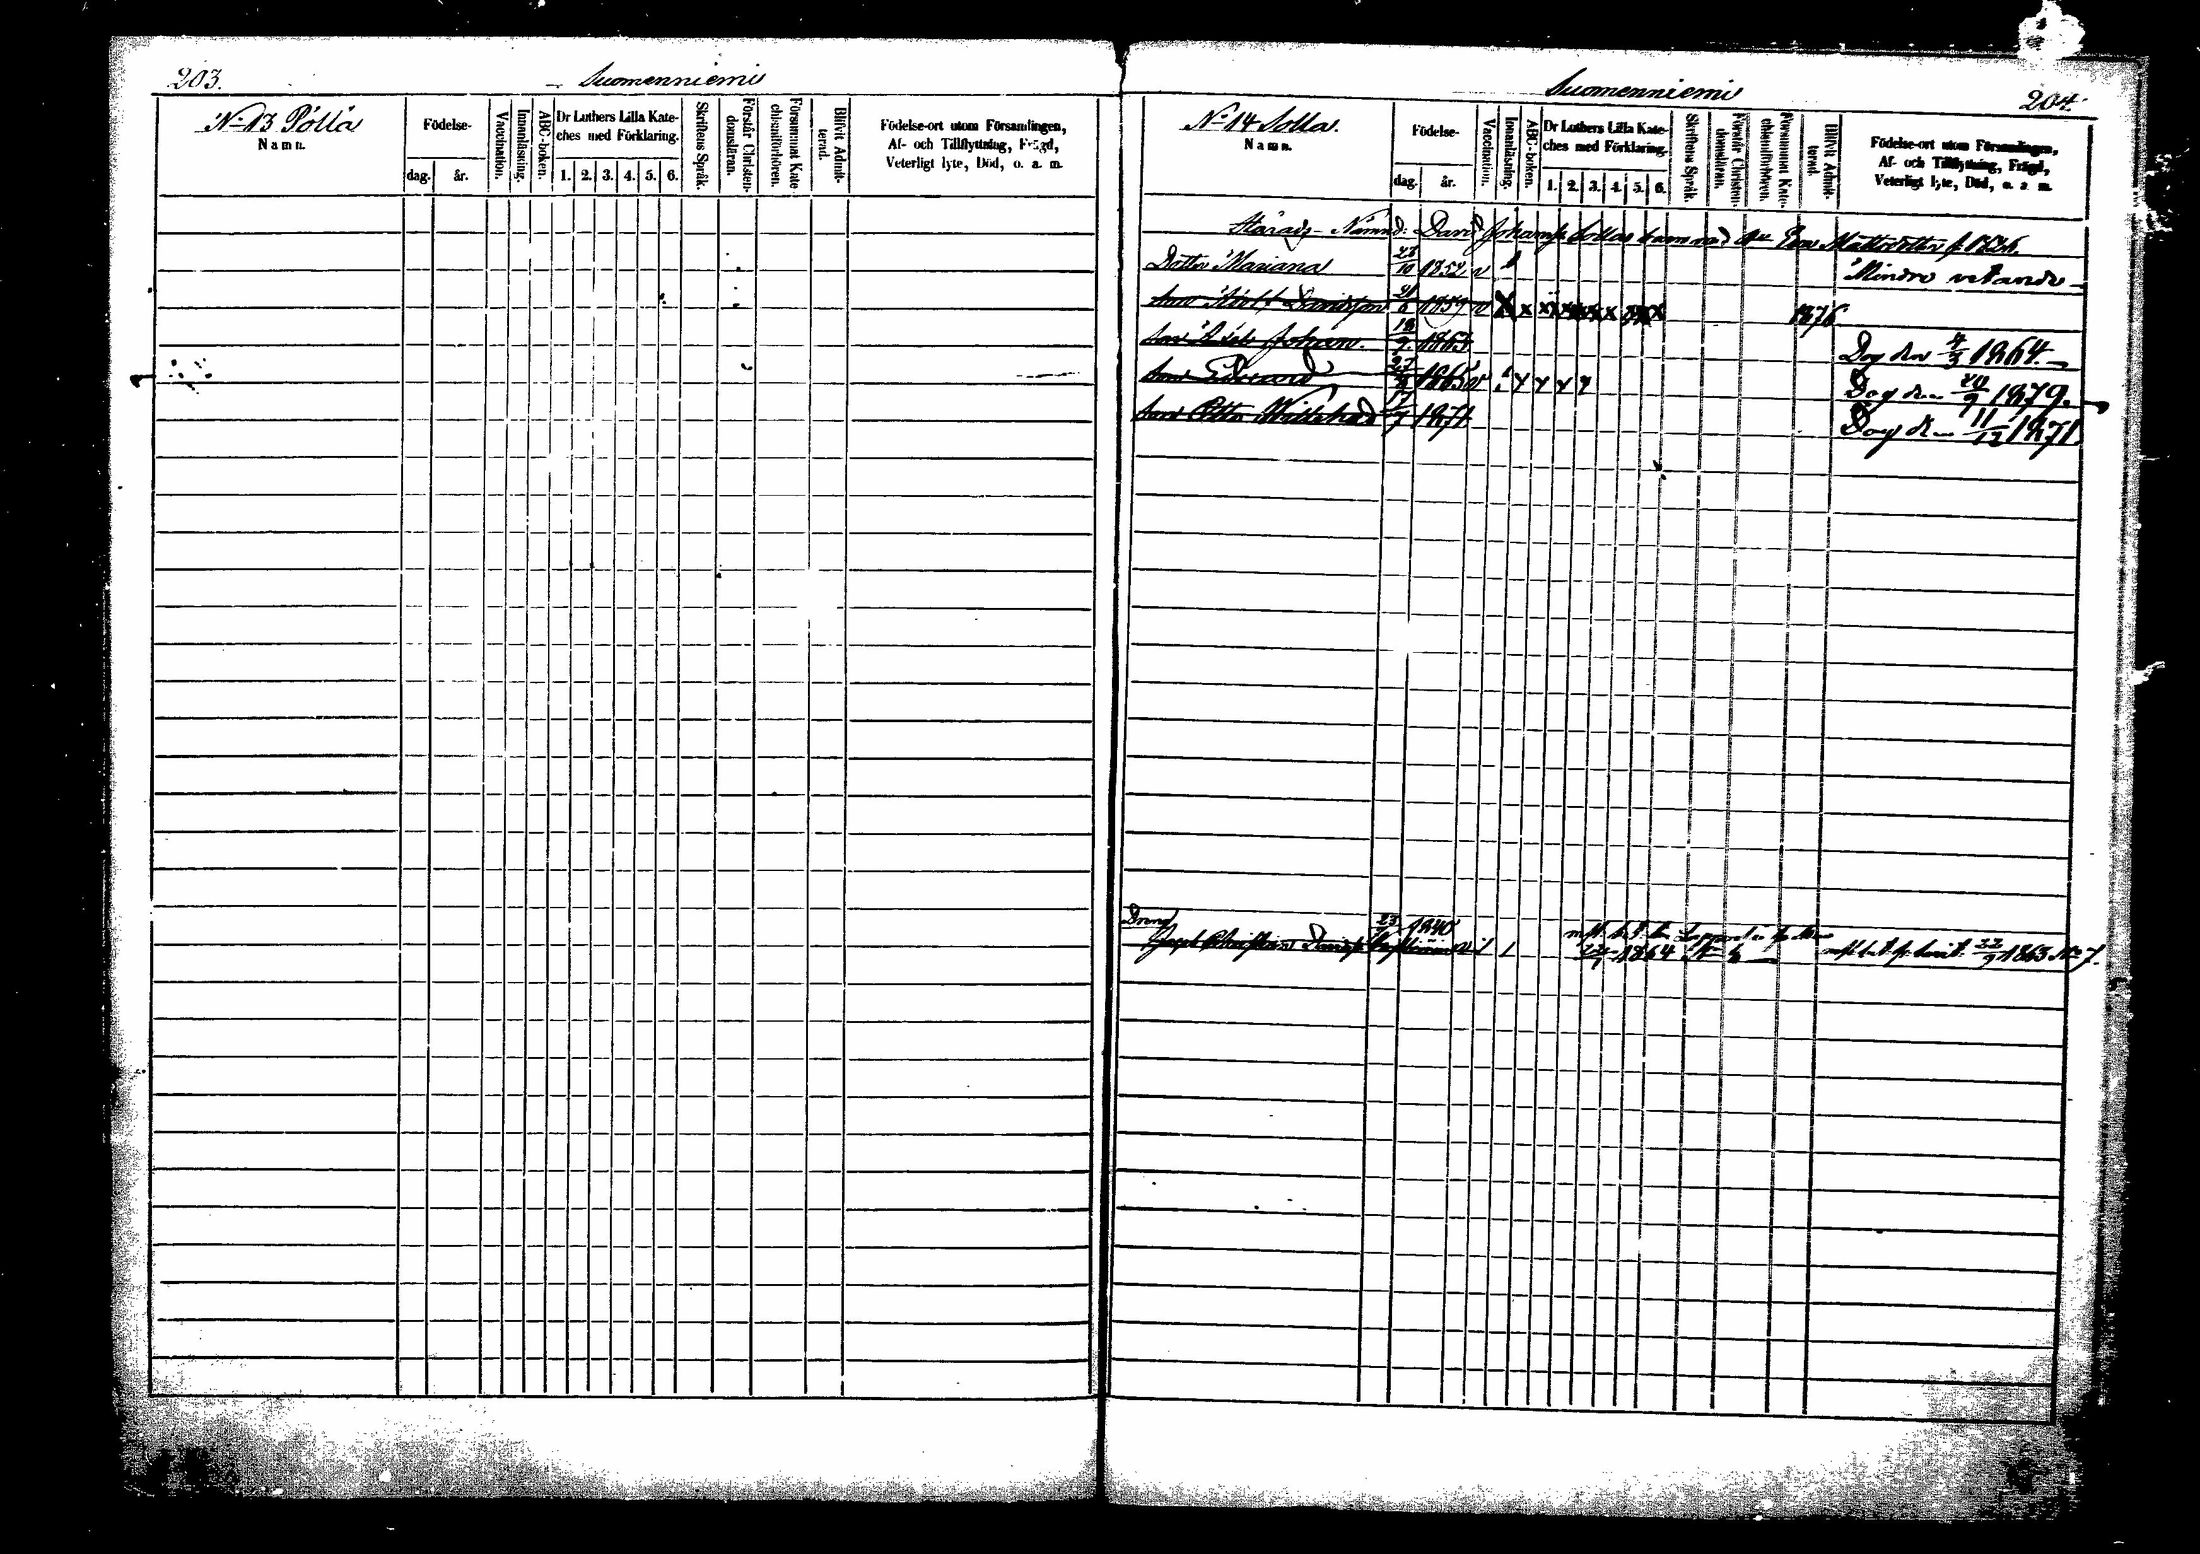 203. Suomenniemi
N:o 13 Pöllä
Namn.
Födelse-
dag. år.
Vaccination.
Innanläsning.
ABC-boken.
Dr Luthers Lilla Kate-
ches med Förklaring.
1. 2. 3. 4. 5. 6.
Skriftens Språk.
Förstår Christen-
domsläran.
Försummat Kate-
chismiförhören.
Blifvit Admit-
terad.
Födelse-ort utom Församlingen,
Af- och Tillflyttning, Frägd,
Veterligt lyte, Död, o. a. m.
Suomenniemi 204.
N:o 14 Solla.
Namn.
Födelse-
dag. år.
Vaccination.
Innanläsning.
ABC-boken.
Dr Luthers Lilla Kate-
ches med Förklaring.
1. 2. 3. 4. 5. 6.
Skriftens Språk.
Förstår Christen-
domsläran.
Försummat Kate-
chismiförhören.
Blifvit Admit-
terad.
Födelse-ort utom Församlingen,
Af- och Tillflyttning, Frägd,
Veterligt lyte, Död, o. a. m.
Härads-Nämnd: David Johansson Sollas barn med
Dotter Mariana 10 1852 v Mindre vetande
Son Adolf Davidsson 6 1859 v x x x x x x x x 1876
Son Johan. 18/9. 1863 Dog den 4/3 1864.
Son Edvard 27 1865 v x x x x Dog den 20/9 1879.
Son Petter 17/7 1871 Dog den 11/12 1871
Dreng
23 1840
1864 22/9 1863 N:o 7.